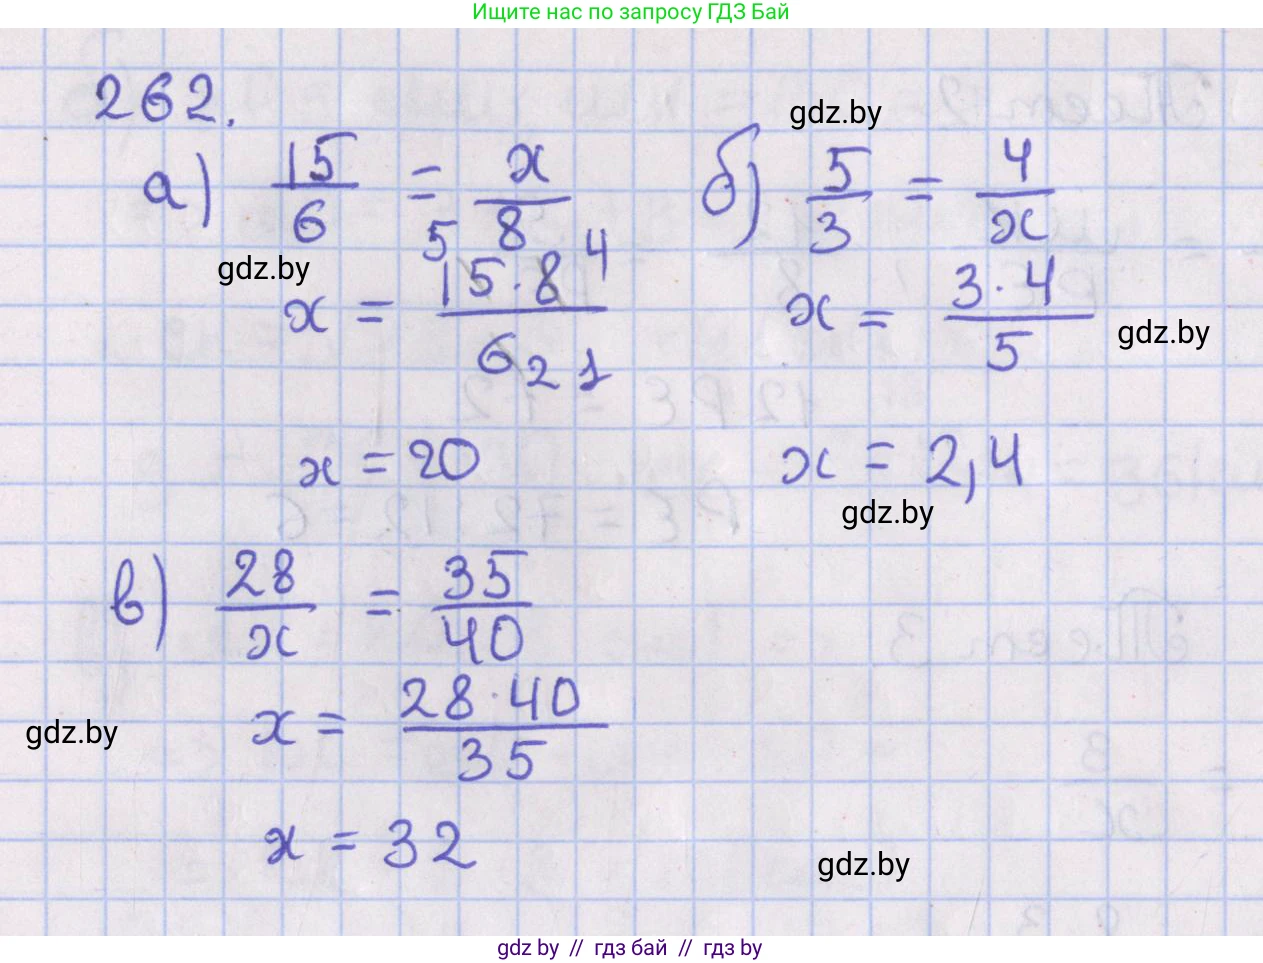 Ищите нас по запросу ГДЗ Бай
262.
gdz.by
а) 15/6 = x/8
б) 5/3 = 4/x
gdz.by
x = 15·8/6 5 4 2 1
x = 3·4/5
gdz.by
x = 20
x = 2,4
gdz.by
в) 28/x = 35/40
x = 28·40/35
gdz.by
x = 32
gdz.by
gdz by // гдз бай // гдз by